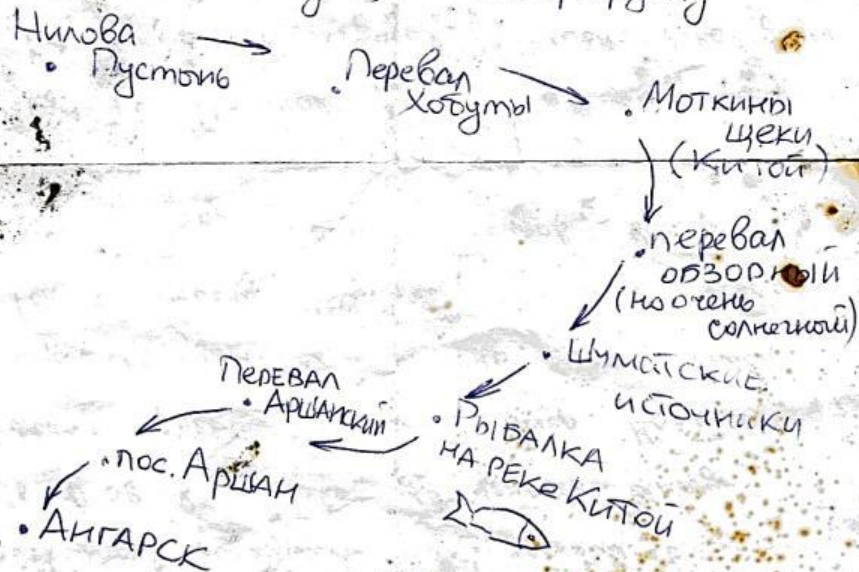 Нилова
Пустынь
Перевал
Хобуты
Моткины
щеки
(Китой)
перевал
ОБЗОРНЫЙ
(но очень
солнечный)
Шумакские
источники
РЫБАЛКА
НА РЕКЕ КИТОЙ
ПЕРЕВАЛ
АРШАНСКИЙ
пос. АРШАН
АНГАРСК